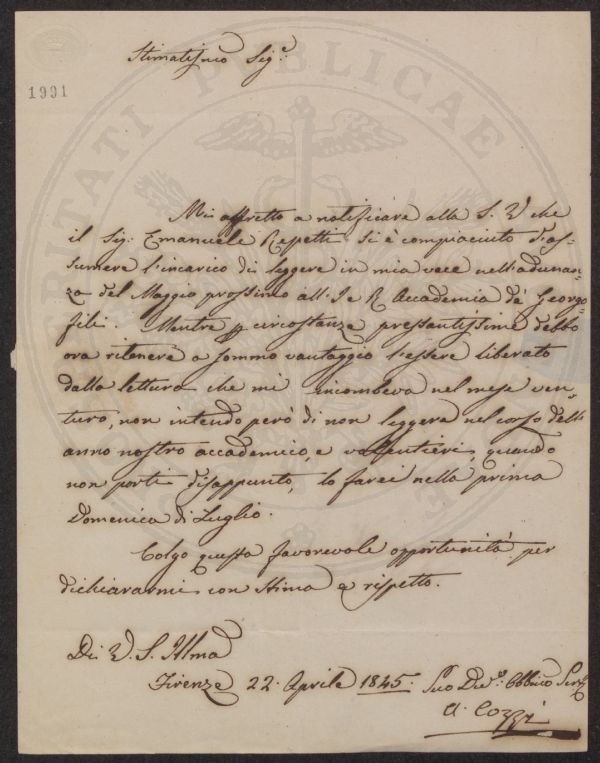 Stimatissimo Sig.e
1991
PROSPERITATI PUBLICAE
Mi affretto a notificare alla S. V che
il Sig. Emanuele Repetti si è compiaciuto d'as-
sumere l'incarico di leggere in mia vece nell'adunan-
za del Maggio prossimo all'I e R Accademia de' Georgo-
fili. Mentre per circostanze pressantissime debbo
ora ritenere a sommo vantaggio l'essere liberato
dalla lettura che mi incombeva nel mese ven-
turo, non intendo però di non leggere nel corso dell'
anno nostro accademico, e volentieri, quando
non porti disappunto, lo farei nella prima
Domenica di Luglio.
Colgo questa favorevole opportunità per
dichiararmi con stima e rispetto.
Di V. S. Illma
Firenze 22. Aprile 1845. Suo Dev.o Obbmo Serv
A. Cozzi